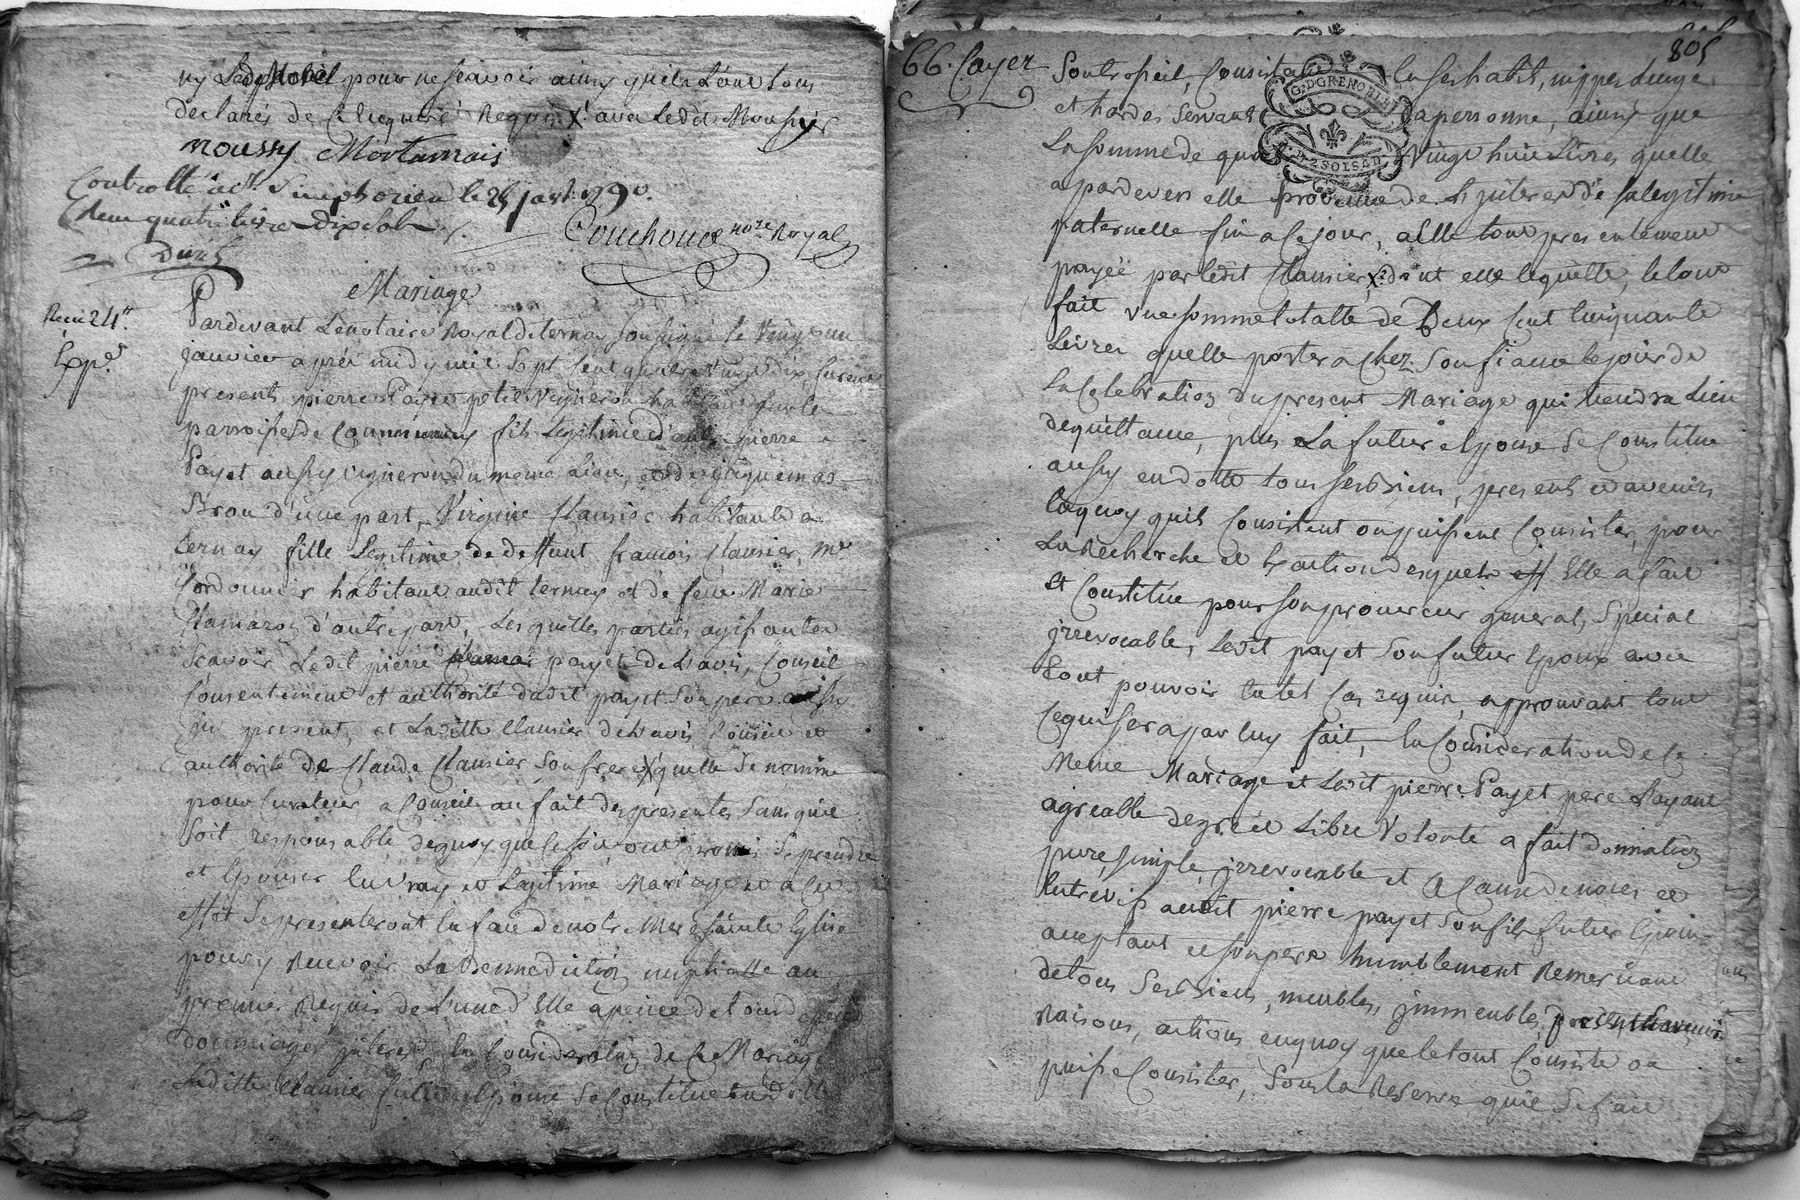 ny Ledit Morel pour ne scavoir ainsy quils L'ont tous
declarés de Ce Enquis Requis X avec Ledit Moussy
moussy Mortamais
Controllé a St Simphorien le 25 janv. 1790.
quatre livres dix sols
Couchoud nore Royal
Mariage
Reçu 24
Exp.
Pardevant Le notaire Royal de ternay soussigné le vingt un
janvier après midy mil Sept Cent quatre vingt dix furent
presents pierre Payet petit vigneron habitant sur la
parroisse de Communay fils Legitime d'autre pierre
Payet aussy vigneron du meme Lieu, et de
Brou d'une part, Virginie Clausier habitante a
ternay fille Legitime de deffunt francois Clausier, Me
Cordonnier habitant audit ternay et de feue Marie
d'autre part, Lesquelles parties agissantes
Scavoir Ledit pierre payet de L'avis, Conseil
Consentement et authorité dudit payet Son pere aussy
icy present, et Laditte Clausier de L'avis Conseil et
authorité de Claude Clausier Son frere X qu'elle Se nomme
pour Curateur a Conseil au fait des presentes Sans qu'il
Soit responsable de quoy que Ce soit ont promis Se prendre
et Epouser En vray et Legitime Mariage et a Cet
effet Se presenteront En face de notre Mere Sainte Eglise
pour y Recevoir La Benediction nuptialle au
premier Requis de L'un d'Elle a peine de tous depens
dommages interests, En Consideration de Ce Mariage
Laditte Clausier future Epouse Se Constitue En dotte
66. Cayer
805
Son trosseil, Consistant En Ses habits, nippes Linge
G. D GRENOBLE
2 SOLS 8 D
et hardes Servant a Sa personne, ainsy que
La Somme de quatre vingt huit Livres quelle
a pardevers elle provenue de L'interest de Sa legitime
paternelle fin a Ce jour, a Elle tout presentement
payée par Ledit Clausier X dont elle Le quitte, Le tout
fait une Somme totalle de Deux Cent Cinquante
Livres quelle portera chez Son fiancé Le jour de
La Celebration du present Mariage qui tiendra Lieu
de quittance, plus La future Epouse Se Constitue
aussy en dotte tous Ses Biens, presents et avenirs
En quoy quils Consistent ou puissent Consister, pour
La Recherche et Exaction desquels Elle a fait
Et Constitué pour Son procureur general, Special
irrevocable, Ledit payet Son futur Epoux avec
tout pouvoir En tel Cas requis, approuvant tout
Ce qui Sera par luy fait, En Consideration de Ce
Meme Mariage et Ledit pierre Payet pere L'ayant
agreable de gré et Libre Volonté a fait donnation
pure, simple, irrevocable et a Cause de noces et
Entrevifs audit pierre payet Son fils futur Epoux
acceptant et Son pere humblement Remerciant
de tous Ses Biens, meubles, immeubles, presents avenirs
Raisons, actions en quoy que le tout Consiste ou
puisse Consister, Sous La Reserve quil Se fait